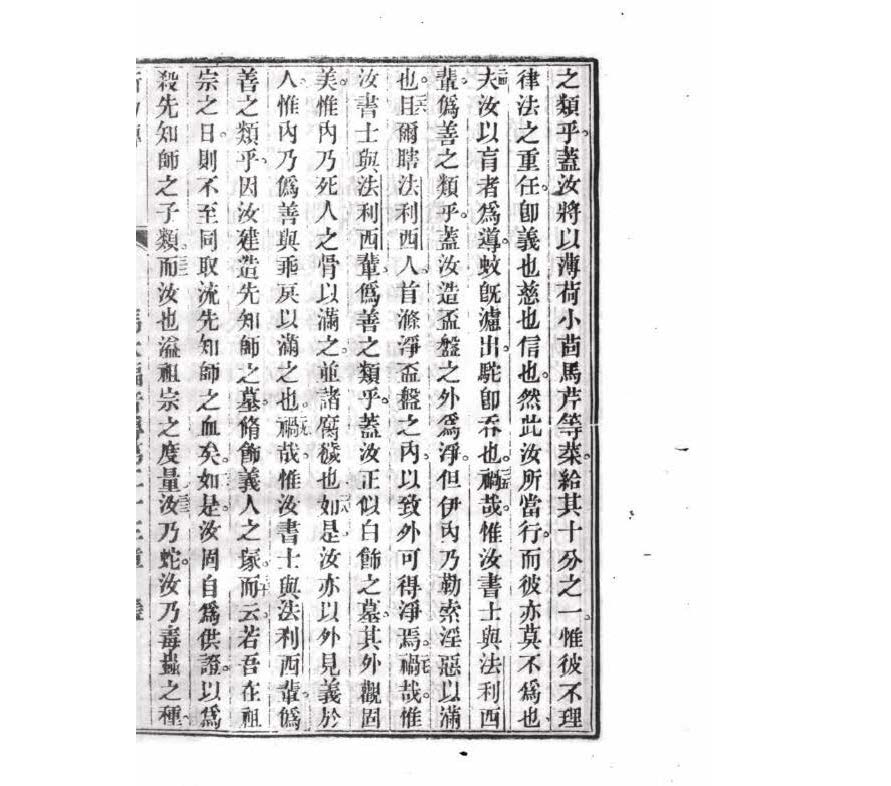 之類乎。蓋汝將以薄荷小茴馬芹等菜。給其十分之一。惟彼不理
律法之重任。卽義也慈也信也。然此汝所當行。而彼亦莫不爲也
夫汝以盲者爲導。蚊旣濾出。駝卽吞也。禍哉。惟汝書士與法利西
輩。僞善之類乎。蓋汝造盃盤之外爲淨。但伊內乃勒索淫惡以滿
也。且爾瞎法利西人。首滌淨盃盤之內。以致外可得淨焉。禍哉。惟
汝書士與法利西輩。僞善之類乎。蓋汝正似白飾之墓。其外觀固
美。惟內乃死人之骨以滿之。並諸腐穢也。如是。汝亦以外見義於
人。惟內乃僞善與乖戾以滿之也。禍哉。惟汝書士與法利西輩。僞
善之類乎。因汝建造先知師之墓。脩飾義人之塚。而云。若吾在祖
宗之日。則不至同取流先知師之血矣。如是。汝固自爲供證。以爲
殺先知師之子類。而汝也溢祖宗之度量。汝乃蛇。汝乃毒蟲之種